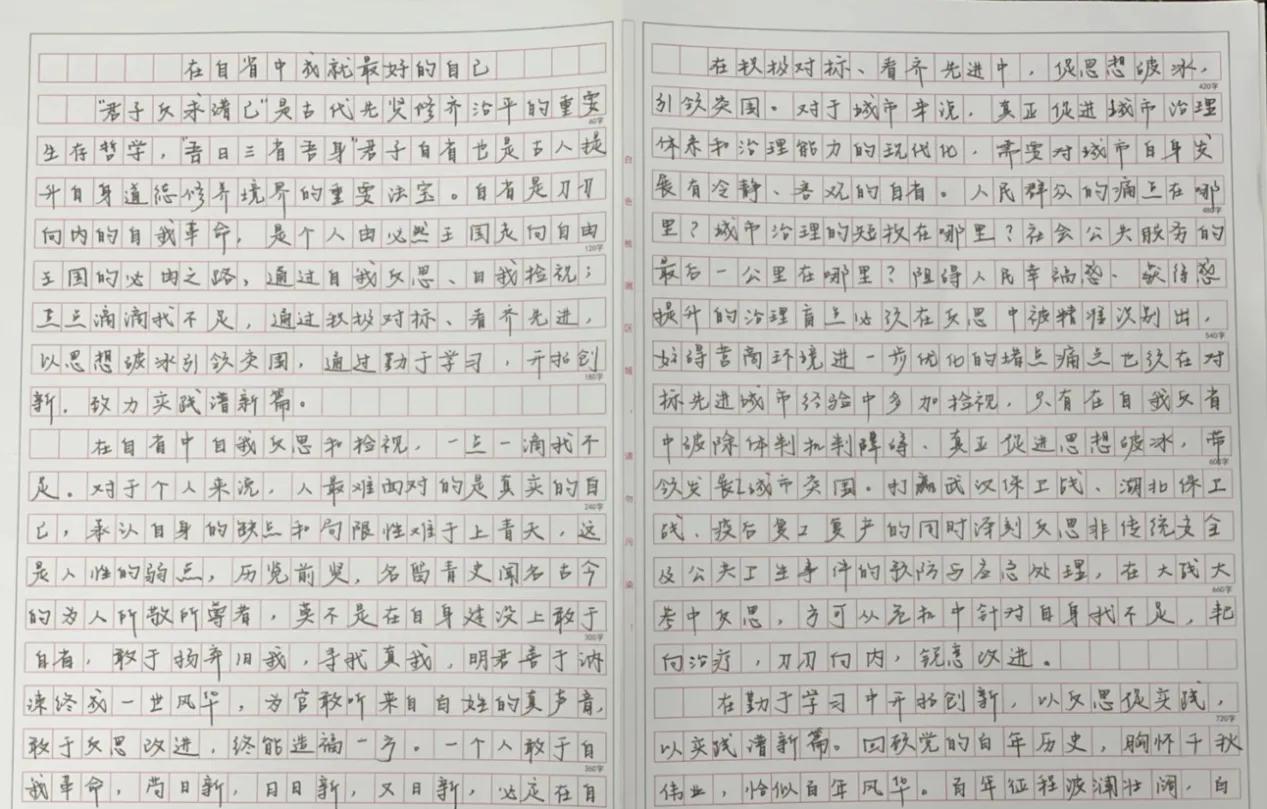 在自省中成就最好的自己
“君子反求诸己”是古代先贤修齐治平的重要
60字
生存哲学，“吾日三省吾身”君子自省也是古人提
升自身道德修养境界的重要法宝。自省是刀刃
向内的自我革命，是个人由必然王国走向自由
120字
王国的必由之路，通过自我反思、自我检视；
点点滴滴找不足，通过积极对标、看齐先进，
以思想破冰引领突围，通过勤于学习，开拓创
180字
新，致力实践谱新篇。
在自省中自我反思和检视，一点一滴找不
足。对于个人来说，人最难面对的是真实的自
240字
己，承认自身的缺点和局限性难于上青天，这
是人性的弱点，历览前贤，名留青史闻名古今
的为人所敬所尊者，莫不是在自身建设上敢于
300字
自省，敢于扬弃旧我，寻找真我，明君善于讷
谏终成一世风华，为官敢听来自百姓的真声音，
敢于反思改进，终能造福一方。一个人敢于自
360字
我革命，苟日新，日日新，又日新，必定在自
白色检测区域，请勿污染！
在积极对标、看齐先进中，促思想破冰，
420字
引领突围。对于城市来说，真正促进城市治理
体系和治理能力的现代化，需要对城市自身发
展有冷静、客观的自省。人民群众的痛点在哪
480字
里？城市治理的短板在哪里？社会公共服务的
最后一公里在哪里？阻碍人民幸福感、获得感
提升的治理盲点必须在反思中被精准识别出，
540字
妨碍营商环境进一步优化的堵点痛点也须在对
标先进城市经验中多加检视，只有在自我反省
中破除体制机制障碍、真正促进思想破冰，带
600字
领发展城市突围。打赢武汉保卫战、湖北保卫
战、疫后复工复产的同时深刻反思非传统安全
及公共卫生事件的预防与应急处理，在大战大
660字
考中反思，方可从危机中针对自身找不足，靶
向治疗，刀刃向内，锐意改进。
在勤于学习中开拓创新，以反思促实践，
720字
以实践谱新篇。回顾党的百年历史，胸怀千秋
伟业，恰似百年风华。百年征程波澜壮阔，百